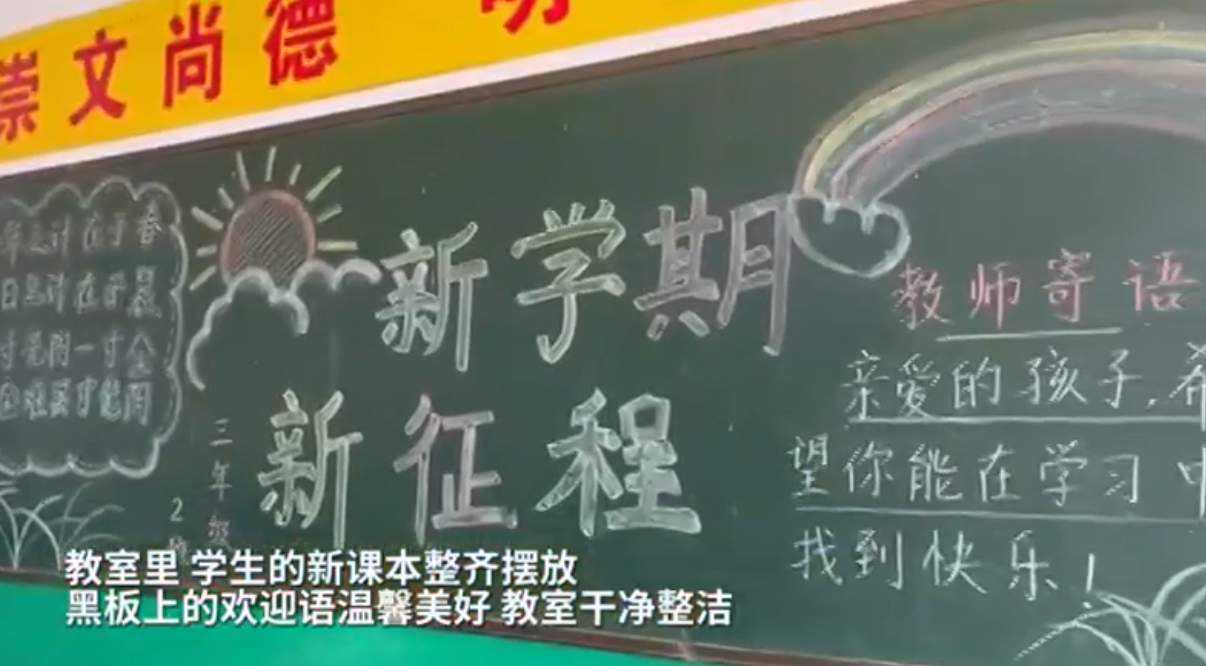 崇文尚德 明
年之计在于春
日之计在于晨
寸光阴一寸金
金难买寸光阴
新学期
新征程
三年级
2班
教师寄语
亲爱的孩子,希
望你能在学习中
找到快乐!
教室里 学生的新课本整齐摆放
黑板上的欢迎语温馨美好 教室干净整洁